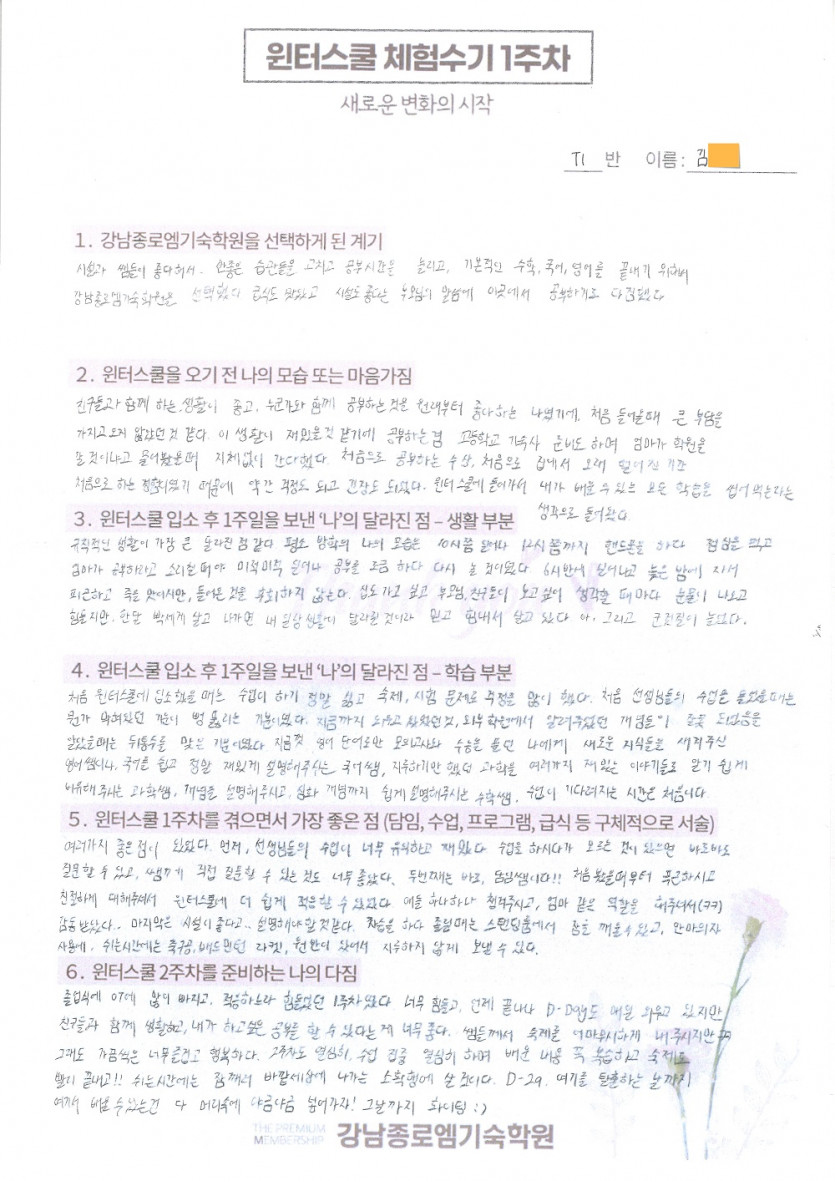 윈터스쿨 체험수기 1주차
새로운 변화의 시작
T1 반 이름: 김
1. 강남종로엠기숙학원을 선택하게 된 계기
시설과 쌤들이 좋다해서. 안좋은 습관들을 고치고 공부시간을 늘리고, 기본적인 수학, 국어, 영어를 끝내기 위해서
강남종로엠기숙학원을 선택했다 급식도 맛있고 시설도 좋다는 부모님의 말씀에 이곳에서 공부하기로 다짐했다
2. 윈터스쿨을 오기 전 나의 모습 또는 마음가짐
친구들과 함께 하는 생활이 좋고, 누군가와 함께 공부하는 것을 원래부터 좋아하는 나였기에, 처음 들어올때 큰 부담을
가지고 오지 않았던 것 같다. 이 생활이 재밌을것 같기에 공부하는 겸 고등학교 기숙사 준비도 하며 엄마가 학원을
갈 것이냐고 물어봤을때 지체없이 간다했다. 처음으로 공부하는 수상, 처음으로 집에서 오래 떨어진 기간
처음으로 하는 경험이었기 때문에 약간 걱정도 되고 긴장도 되었다. 윈터스쿨에 들어가서 내가 배울 수 있는 모든 학습을 씹어먹는다는
생각으로 들어왔다
3. 윈터스쿨 입소 후 1주일을 보낸 ‘나’의 달라진 점 – 생활 부분
규칙적인 생활이 가장 큰 달라진 점 같다 평소 방학의 나의 모습은 10시쯤 일어나 12시쯤까지 핸드폰을 하다 점심을 먹고
엄마가 공부하라고 소리칠때야 미적미적 일어나 공부를 조금 하다 다시 놀 것이었다. 6시반에 일어나고 늦은 밤에 자서
피곤하고 죽을 맛이지만, 들어온 것을 후회하지 않는다. 집도 가고 싶고 부모님, 친구들이 보고싶어 생각할 때마다 눈물이 나오고
힘들지만, 한달 빡세게 살고 나가면 내 일상생활이 달라질 것이라 믿고 힘내서 살고 있다 아, 그리고 근질질이 늘었다.
4. 윈터스쿨 입소 후 1주일을 보낸 ‘나’의 달라진 점 – 학습 부분
처음 윈터스쿨에 입소했을 때는 수업이 하기 정말 싫고 숙제, 시험 문제로 걱정을 많이 했다. 처음 선생님들의 수업을 들었을때는
뭔가 막혀있던 기분이 뻥 뚫리는 기분이였다. 지금까지 외우고 있었던 것, 외부 학원에서 알려주었던 개념들이 잘못 되었음을
알았을때는 뒤통수를 맞은 기분이였다. 지금껏 영어 단어로만 모의고사와 수능을 풀던 나에게 새로운 지식들을 새겨주신
영어쌤이나, 국어를 쉽고 정말 재밌게 설명해주시는 국어쌤, 지루하기만 했던 과학을 여러가지 재밌는 이야기들로 알기 쉽게
비유해 주시는 과학쌤, 개념을 설명해주시고, 심화 개념까지 쉽게 설명해주시는 수학쌤. 수업이 기다려지는 시간은 처음이다.
5. 윈터스쿨 1주차를 겪으면서 가장 좋은 점 (담임, 수업, 프로그램, 급식 등 구체적으로 서술)
여러가지 좋은점이 있었다. 먼저, 선생님들의 수업이 너무 유익하고 재밌다 수업을 하시다가 모르는 것이 있으면 바로바로
질문할 수 있고, 쌤께 직접 질문할 수 있는 것도 너무 좋았다. 두번째는 바로, 담임쌤이다!! 처음 봤을때부터 푸근하시고
친절하게 대해주셔서 윈터스쿨에 더 쉽게 적응할 수 있었다. 애들 하나하나 챙겨주시고, 엄마 같은 역할을 해주셔서(ㅋㅋ)
감동 받았다.. 마지막은 시설이 좋다고.. 설명해야 할것 같다. 자습을 하다 졸릴때는 스탠딩룸에서 잠을 깨울 수 있고, 안마의자
사용에, 쉬는시간에는 축구공, 배드민턴 라켓, 원반이 있어서 지루하지 않게 보낼 수 있다.
6. 윈터스쿨 2주차를 준비하는 나의 다짐
졸업식에 이에 많이 빠지고, 적응하느라 힘들었던 1주차였다 너무 힘들고, 언제 끝나나 D-Day도 매일 외우고 있지만
친구들과 함께 생활하고, 내가 하고싶은 공부를 할 수 있다는 게 너무 좋다. 쌤들께서 숙제를 어마무시하게 내주시지만ㅠㅠ
그래도 가끔씩은 너무 즐겁고 행복하다. 2주차도 열심히, 수업 집중 열심히 하며 배운 내용 꼭 복습하고 숙제도
빨리 끝내고!! 쉬는시간에는 잠깨서 바깥세상에 나가는 소확행에 살 것이다. D-29. 여기를 탈출하는 날까지
여기서 배울 수 있는건 다 머리속에 야금야금 넣어가자! 그날까지 화이팅 :)
THE PREMIUM
MEMBERSHIP 강남종로엠기숙학원